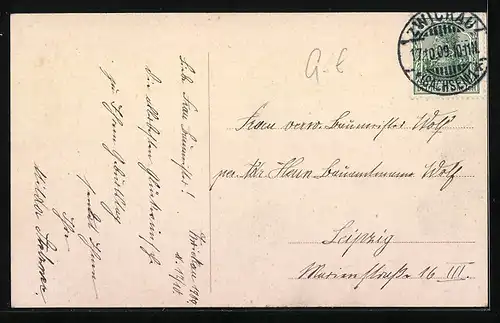 Zwickau 1909
d. 17/10
Liebe Frau Baumeister!
Die allerbesten Glückwünsche
zu Ihrem Geburtstag
sendet Ihnen
Ihr
ZWICKAU
17.10.09.10-11N.
(SACHSEN)
G-E
Frau verw. Baumeister Wolf
per Adr Herrn Bauamtmann Wolf
Leipzig
Marienstraße 16 III.